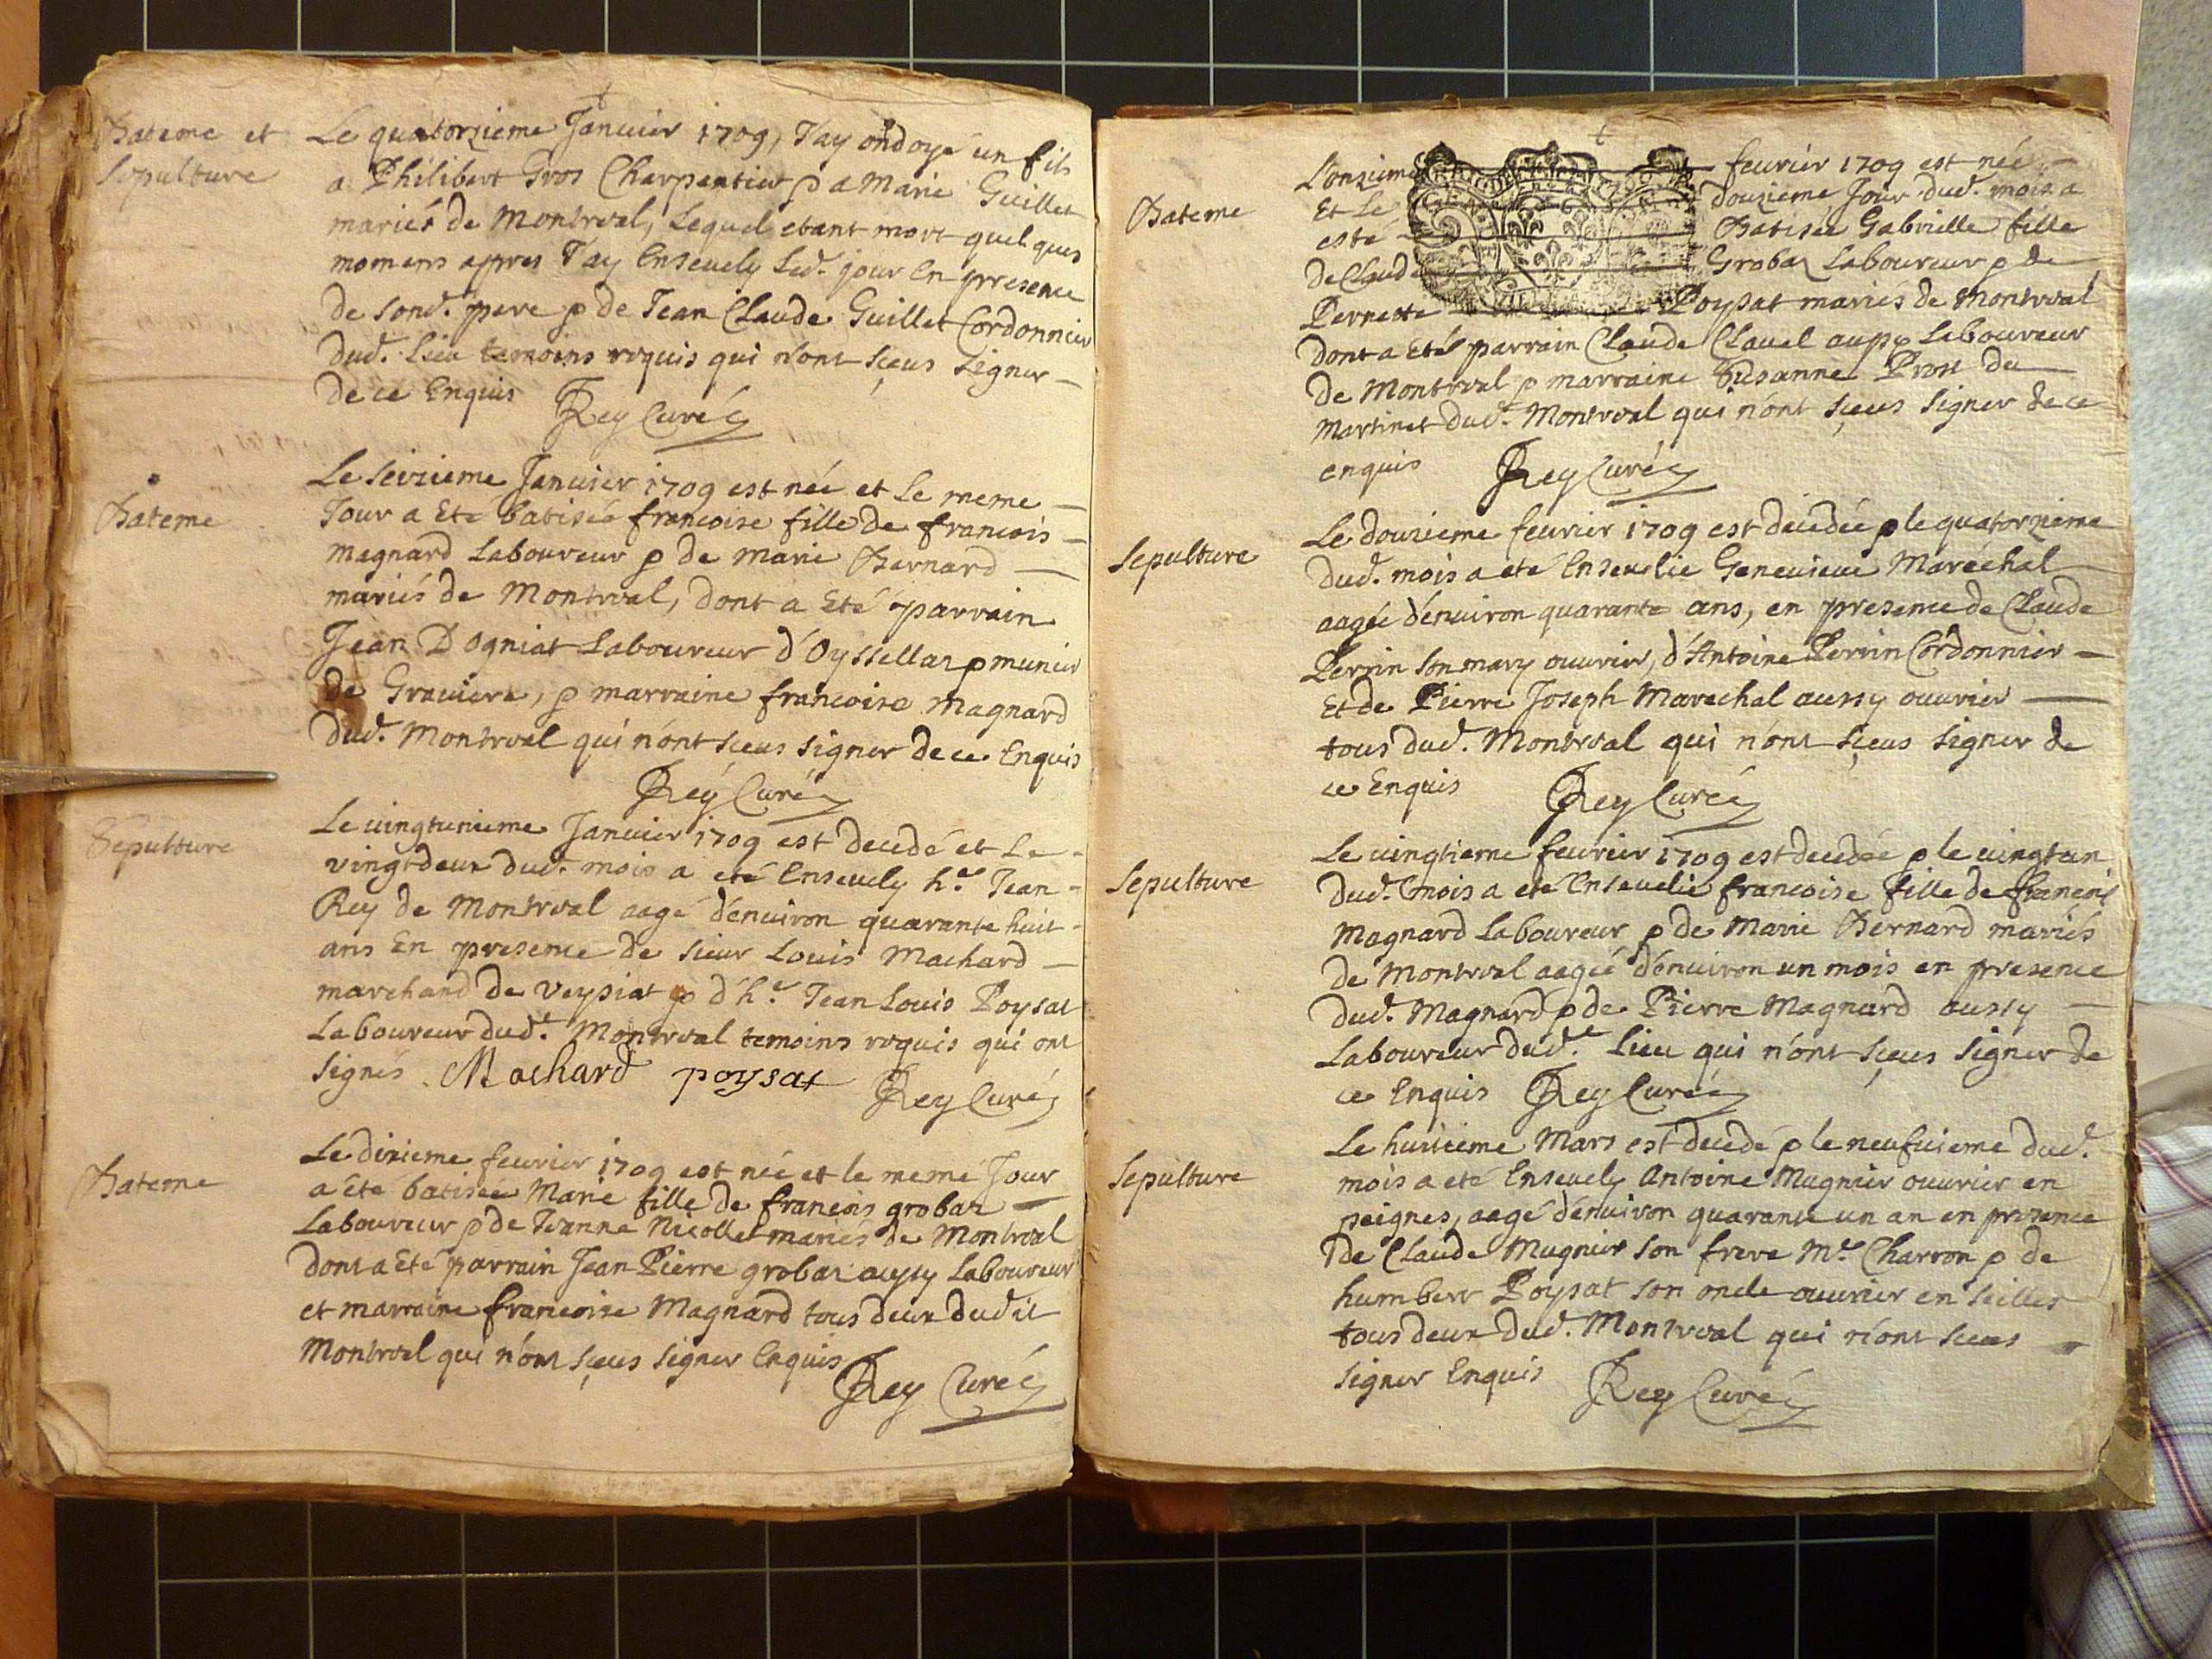 Bateme et
Sepulture
Le quatorzieme Janvier 1709, J'ay ondoyé un fils
a Philibert Gros Charpentier & a Marie Guillet
mariés de Montreal, Lequel etant mort quelques
momens appres J'ay Ensevely Led. jour En presence
de Sond. pere & de Jean Claude Guillet Cordonnier
dud. Lieu temoins requis qui n'ont sçeus signer
de ce Enquis Rey Curé
Bateme
Le Seizieme Janvier 1709 est née et Le meme
Jour a Eté batisée francoise fille de francois
magnard Laboureur & de marie Bernard
mariés de Montreal, dont a Eté parrain
Jean D'Ogniat Laboureur d'Oyssellaz & munier
de Graviere, & marraine francoise magnard
dud. Montreal qui n'ont sçeus signer de ce Enquis
Rey Curé
Sepulture
Le vingtunieme Janvier 1709 est decedé et Le
vingtdeux dud. mois a eté Ensevely h.e Jean
Rey de Montreal aagé d'environ quarante huit
ans En presence de sieur Louis Machard
marchand de Veyziat & d'h.e Jean Louis Poysat
Laboureur dud.t Montreal temoins requis qui ont
signés Machard poysat Rey Curé
Bateme
Le dixieme fevrier 1709 est née et le meme Jour
a été batisée Marie fille de francois grobaz
Laboureur & de Jeanne Nicollet mariés de Montreal
dont a Eté parrain Jean Pierre grobaz aussy Laboureur
et marraine francoise Magnard tous deux dudit
Montreal qui n'ont sçeus signer Enquis
Rey Curé
Bateme
L'onzieme fevrier 1709 est née
Et Le douzieme Jour dud. mois a
esté Batisée Gabrielle fille
de Claude Grobaz Laboureur & de
Pernette Poysat mariés de Montreal
dont a Eté parrain Claude Clavel aussy Laboureur
de Montreal & marraine Susanne Prost du
Martinet dud. Montreal qui n'ont sçeus signer de ce
enquis Rey Curé
Sepulture
Le douzieme fevrier 1709 est decedée & le quatorzieme
dud. mois a eté Ensevelie Genevieve Maréchal
aagée d'environ quarante ans, en presence de Claude
Perrin son mary ouvrier, d'Antoine Perrin Cordonnier
Et de Pierre Joseph Marechal aussy ouvrier
tous dud. Montreal qui n'ont sçeus signer de
ce Enquis Rey Curé
Sepulture
Le vingtieme fevrier 1709 est decedée & le vingtun
dud. mois a eté Ensevelie francoise fille de francois
Magnard Laboureur & de Marie Bernard mariés
de Montreal aagée d'environ un mois en presence
dud. Magnard & de Pierre Magnard aussy
Laboureur dud.t Lieu qui n'ont sçeus signer de
ce Enquis Rey Curé
Sepulture
Le huitieme Mars est decedé & le neufvieme dud.
mois a eté Ensevely Antoine Mugnier ouvrier en
peignes, aagé d'environ quarante un an en presence
de Claude Mugnier son frere M.e Charron & de
humbert Poysat son oncle ouvrier en seilles
tous deux dud. Montreal qui n'ont sceus
signer Enquis Rey Curé